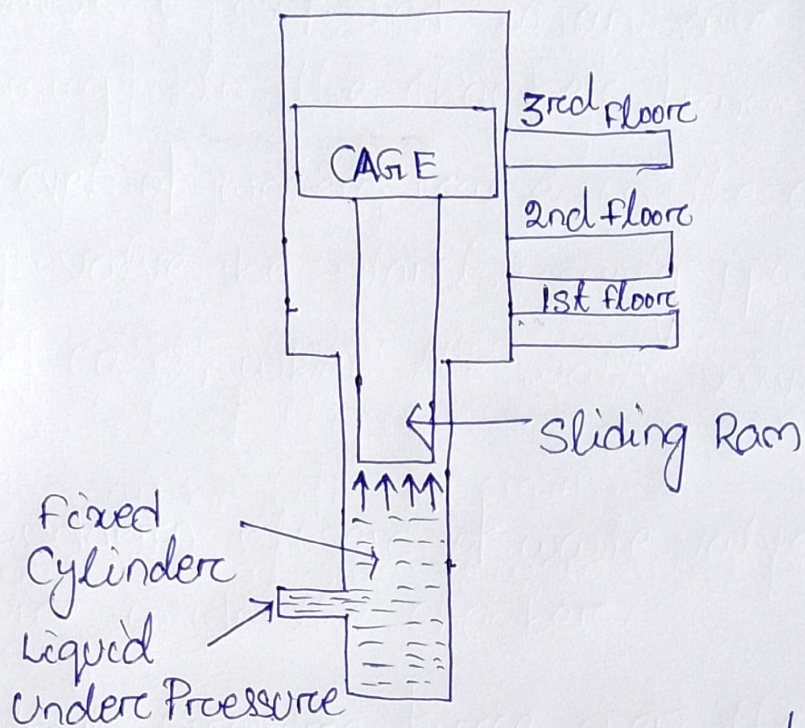 3rd floor
CAGE
2nd floor
1st floor
Sliding Ram
Fixed
Cylinder
Liquid
Under Pressure